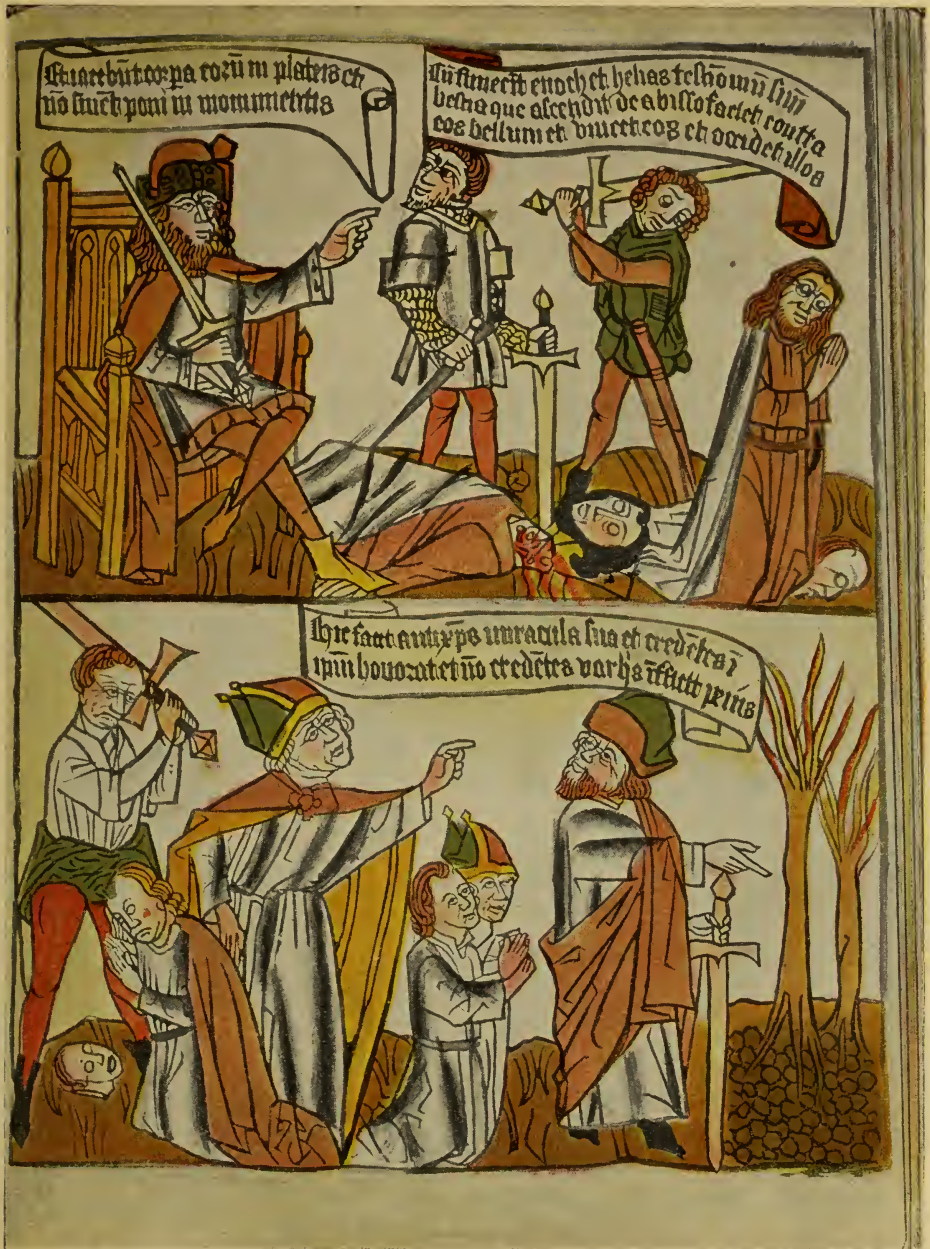 Et iacebūt corpa eorū in plateis et
nō sinēt poni in monumētis
Cū finierīt enoch et helias testiōniū suū
bestia que ascendit de abisso faciet contra
eos bellum et vincet eos et occidet illos
Hic facit antixp̄s miracula sua et credētes ī
ipm̄ honorat et nō credētes varijs īficit penis